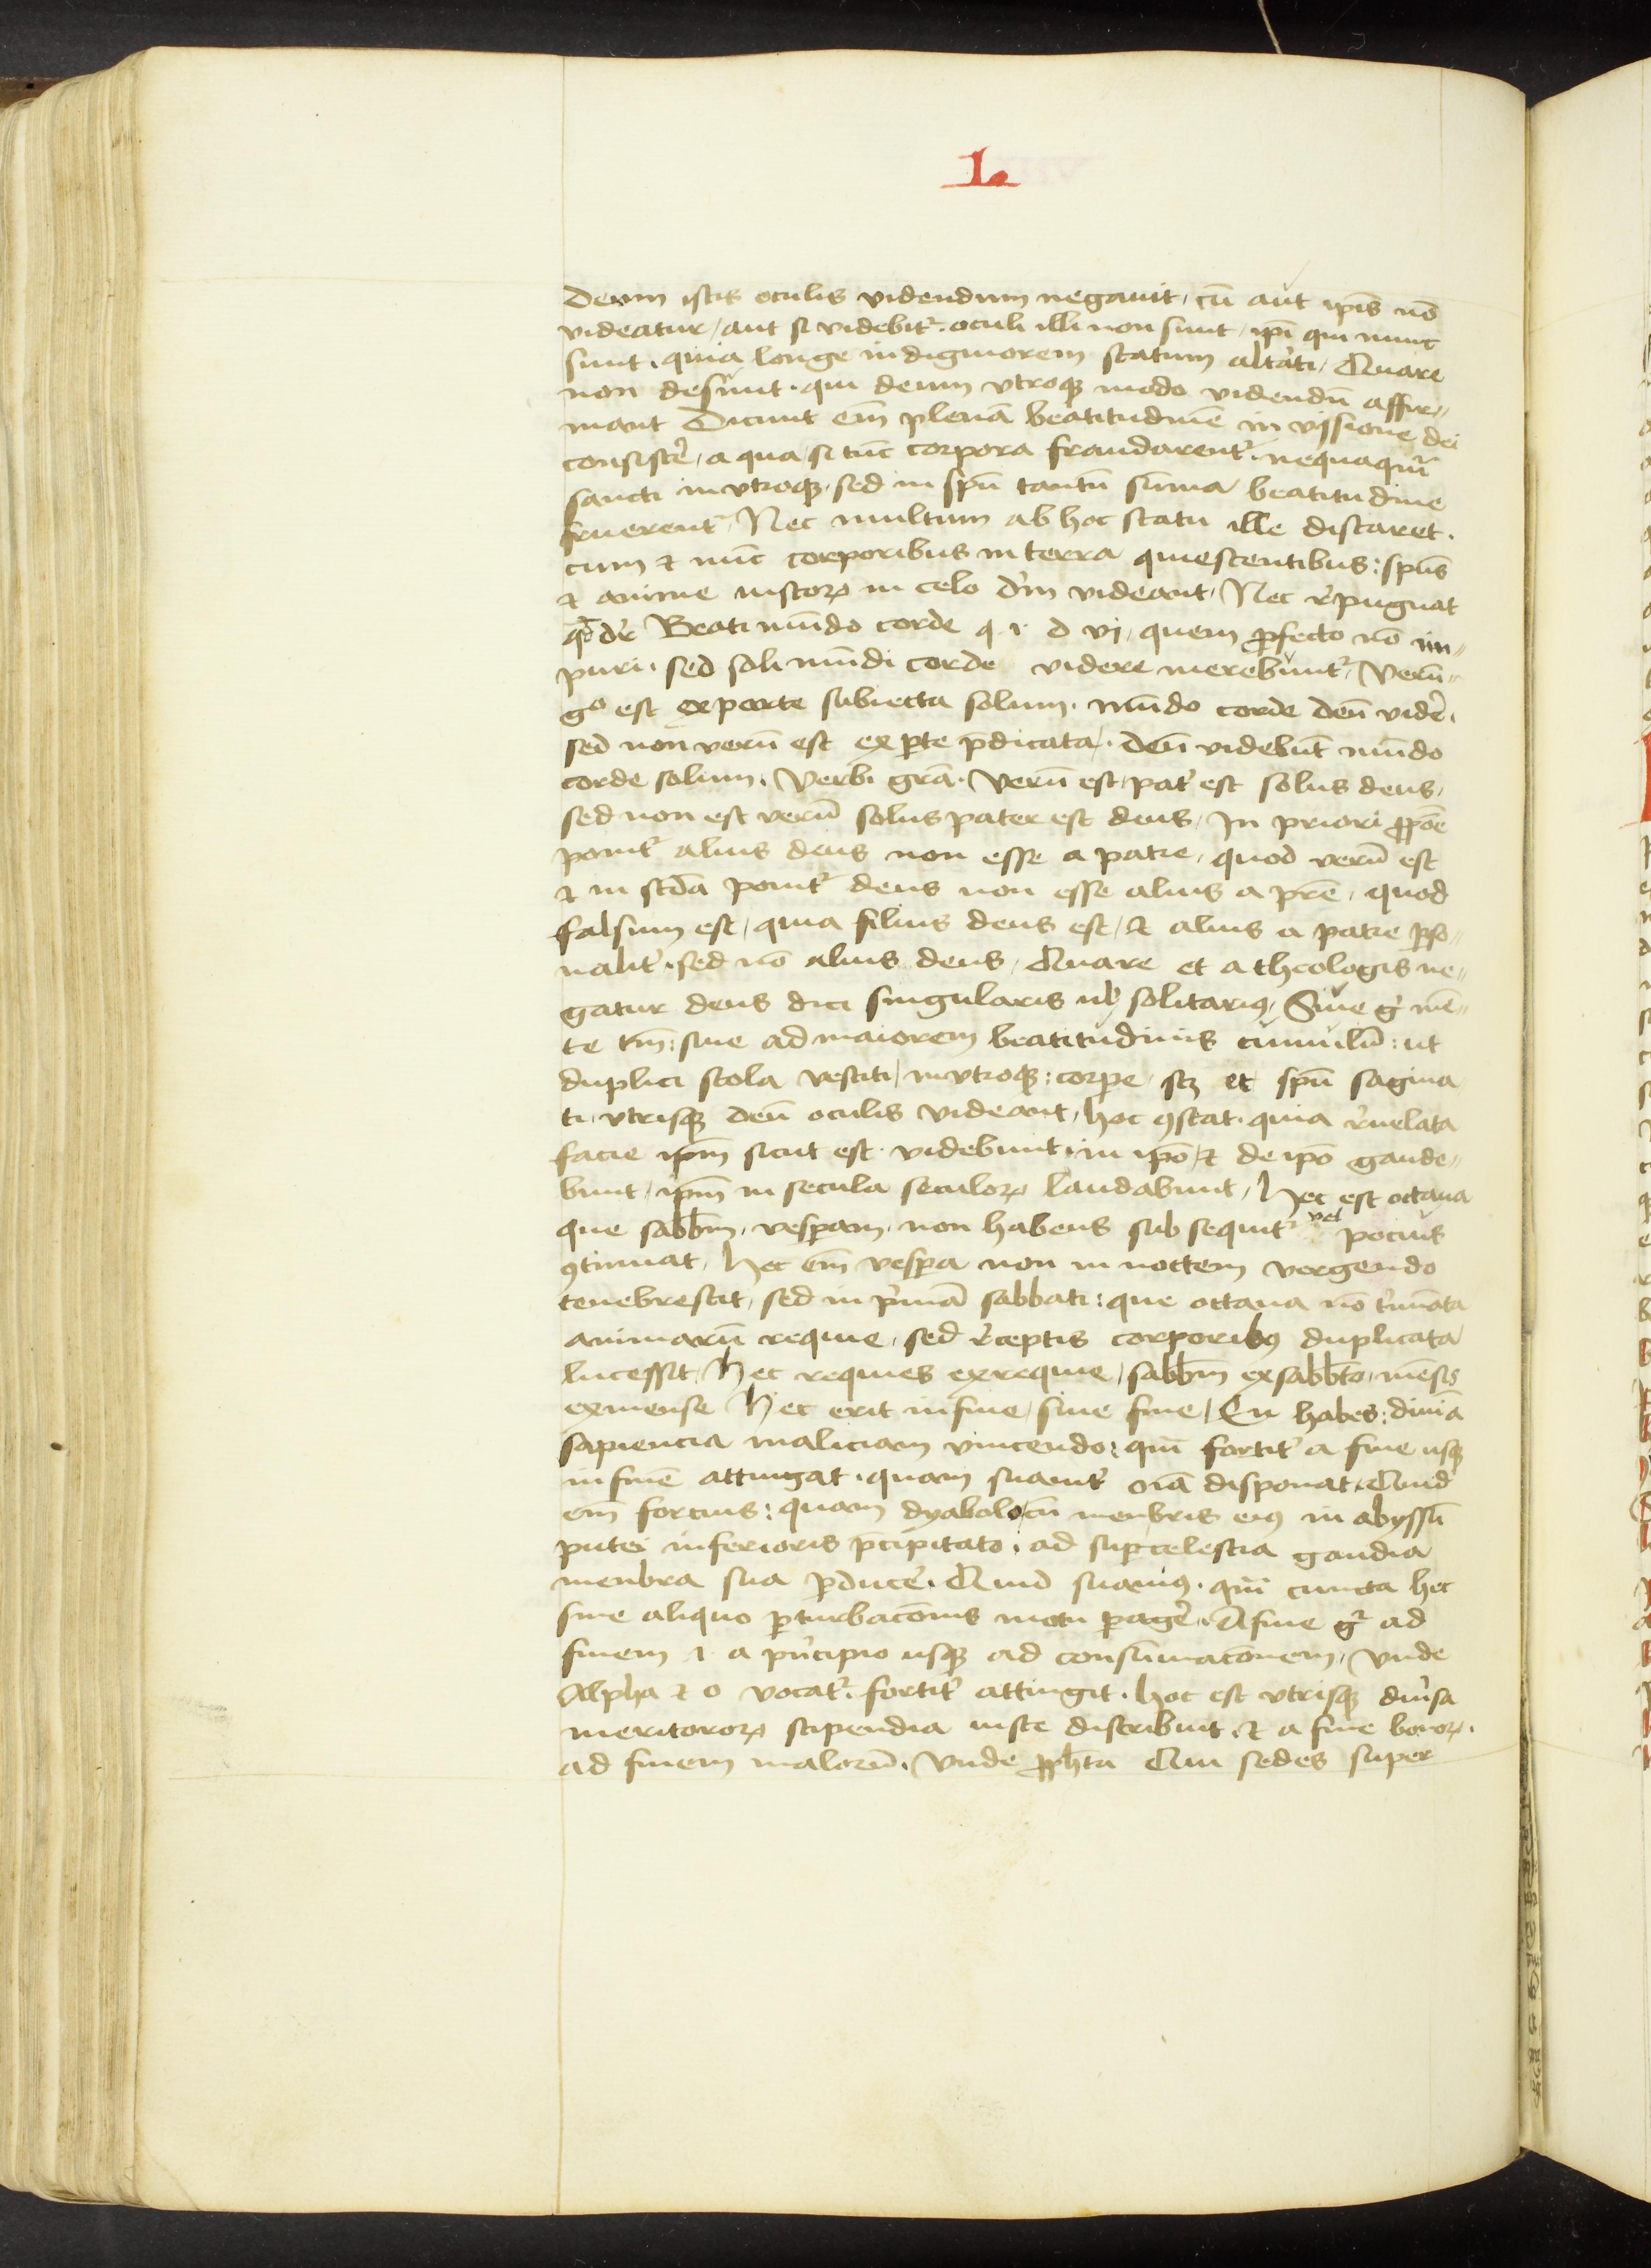 L
deum istis oculis videndum negauit, cū aut ipīs nō
videatur, aut si videbit᷑. oculi illi non sunt, ipī qui nunc
sunt. quia longe in digniorem statum altāti, Quare
non desunt. qui deum vtroq modo videndū affir-
mant Dicunt em̄ plenā beatitudinē in visione dei
consistē, a qua si tūc corpora fraudarent᷑. nequaquā
sancti in vtroq, sed in spū tantū sūma beatitudine
fruerent᷑, Nec multum ab hoc statu ille distaret.
cum & nūc corporibus in terra quiescentibus: spūs
& anime iustoꝝ in celo dm̄ videant, Nec r̄pugnat
qd dr̄ Beati mūdo corde q i d vi, quem ꝓfecto nō im-
puri. sed soli mūdi corde videre merebunt᷑, Verū-
gͦ est ex parte subiecta solum. mūdo corde deū vidē.
sed non verū est ex ꝑte p̄dicata. deū videbūt mūdo
corde solum. Verbi grā. verū est, pat̄ est solus deus,
sed non est verū solus pater est deus, In priori ꝓpōe
ponit᷑ alius deus non esse a patre, quod verū est
& in scd̄a ponit᷑ deus non esse alius a pr̄e, quod
falsum est, quia filius deus est, & alius a patre ꝑso-
nalit̄. sed nō alius deus, Quare et a theologis ne-
gatur deus dici singularis ul̄ solitariꝰ, Siue g̊ mē-
te tm̄: siue ad maiorem beatitudinis cumulū: ut
duplici stola vestiti, in vtroq: corpe, scꝫ et spū sagina
ti, vtrisq deū oculis videant, hoc ꝯstat. quia r̄uelata
facie ipm̄ sicut est videbunt, in ipō, & de ipō gaude-
bunt, ipm̄ in secula seculoꝝ laudabunt, Hec est octaua
que sabb̄m, vesꝑam, non habens sub sequit᷑ vel pocius
ꝯtinuat, Hec em̄ vesꝑa non in noctem vergendo
tenebrescit, sed in p̄mā sabbati: que octaua nō t̄minata
animarū requie, sed r̄ceptis corporibꝰ duplicata
lucessit, Hec requies ex requie, sabb̄m ex sabb̄to, mēsis
ex mense Hec erit in fine, sine fine, En habes: diuīa
sapiencia maliciam vincendo: quā fortit̄ a fine usq
in finē attingat. quam suauit̄ oīa disponat, Quid
em̄ forcius: quam dyabolo cū menbris eiꝰ in abyssū
putei inferioris p̄cipitato. ad suꝑcelestia gaudia
menbra sua ꝑducē. Quid suauiꝰ. quā cuncta hec
sine aliquo ꝑturbacōnis motu ꝑagē. A fine g᷑ ad
finem .i. a pn̄cipio usq ad consūmacōnem, Vnde
Alpha & o vocat᷑. fortit̄ attingit. hoc est vtrisq diūsa
meritoroꝝ stipendia iuste distribuit. & a fine bonoꝝ.
ad finem malorū. Vnde ꝓphta Qui sedes super